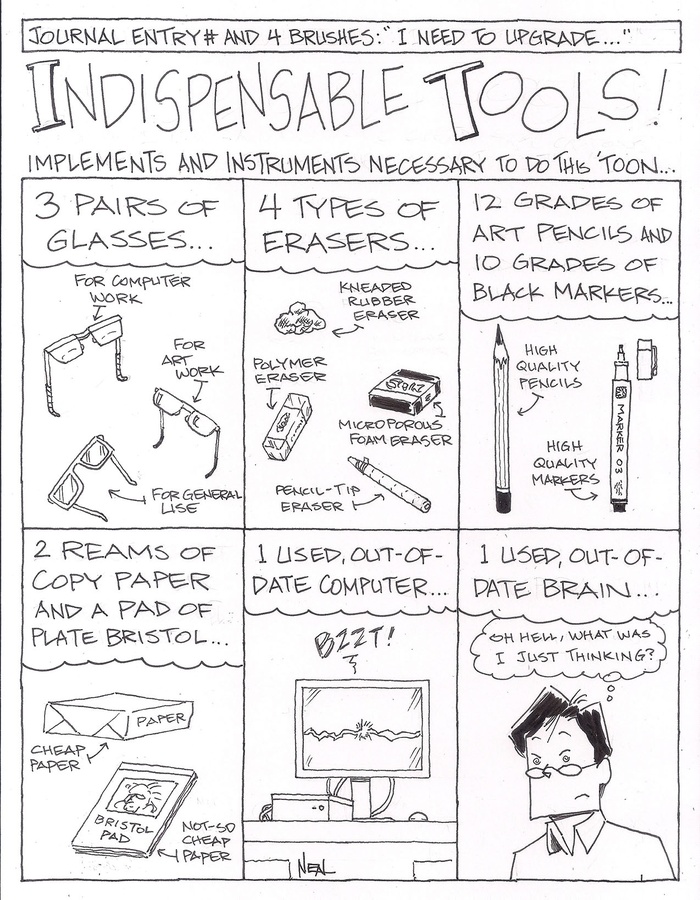 JOURNAL ENTRY # AND 4 BRUSHES: "I NEED TO UPGRADE..."
INDISPENSABLE TOOLS!
IMPLEMENTS AND INSTRUMENTS NECESSARY TO DO THIS 'TOON...
3 PAIRS OF
GLASSES...
FOR COMPUTER
WORK
FOR
ART
WORK
FOR GENERAL
USE
4 TYPES OF
ERASERS...
KNEADED
RUBBER
ERASER
POLYMER
ERASER
MICROPOROUS
FOAM ERASER
PENCIL-TIP
ERASER
12 GRADES OF
ART PENCILS AND
10 GRADES OF
BLACK MARKERS...
HIGH
QUALITY
PENCILS
MARKER 03
HIGH
QUALITY
MARKERS
2 REAMS OF
COPY PAPER
AND A PAD OF
PLATE BRISTOL...
PAPER
CHEAP
PAPER
BRISTOL
PAD
NOT-SO
CHEAP
PAPER
1 USED, OUT-OF-
DATE COMPUTER...
BZZT!
NEAL
1 USED, OUT-OF-
DATE BRAIN...
OH HELL, WHAT WAS
I JUST THINKING?